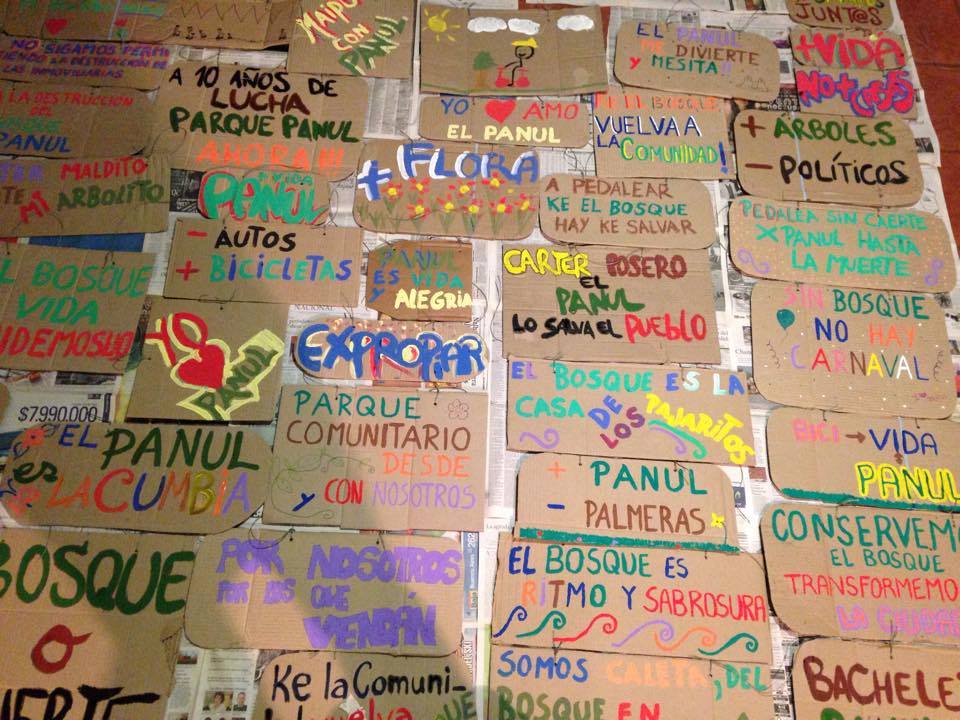 NO SIGAMOS PERMI
TIENDO LA DESTRUCCION DE
LAS INMOBILIARIAS
MAIPU
CON
PANUL
EL PANUL
ME DIVIERTE
Y MESITA!!
JUNT@S
+VIDA
NO+
A LA DESTRUCCION
DEL
PANUL
A 10 AÑOS DE
LUCHA
PARQUE PANUL
AHORA!!!
YO AMO
EL PANUL
BOSQUE
VUELVA A
LA COMUNIDAD!
+ ARBOLES
- POLÍTICOS
MALDITO
MI ARBOLITO
+ VIDA
PANUL
+ FLORA
A PEDALEAR
KE EL BOSQUE
HAY KE SALVAR
PEDALEA SIN CAERTE
X PANUL HASTA
LA MUERTE
- AUTOS
+ BICICLETAS
PANUL
ES VIDA
Y ALEGRIA
CARTER POSERO
EL
PANUL
LO SALVA EL PUEBLO
EL BOSQUE
VIDA
YO
PANUL
EXPROPIAR
SIN BOSQUE
NO HAY
CARNAVAL
EL BOSQUE ES LA
CASA DE
LOS PAJARITOS
$7.990.000
EL PANUL
es LA CUMBIA
PARQUE
COMUNITARIO
DESDE
Y CON NOSOTROS
+ PANUL
- PALMERAS
BICI → VIDA
PANUL
CONSERVEM
EL BOSQUE
TRANSFORMEMO
LA CIUDAD
BOSQUE
O
POR NOSOTROS
POR LOS QUE
VENDÁN
EL BOSQUE ES
RITMO Y SABROSURA
Ke la Comuni-
vuelva
SOMOS CALETA, DEL
BOSQUE EN
BACHELE